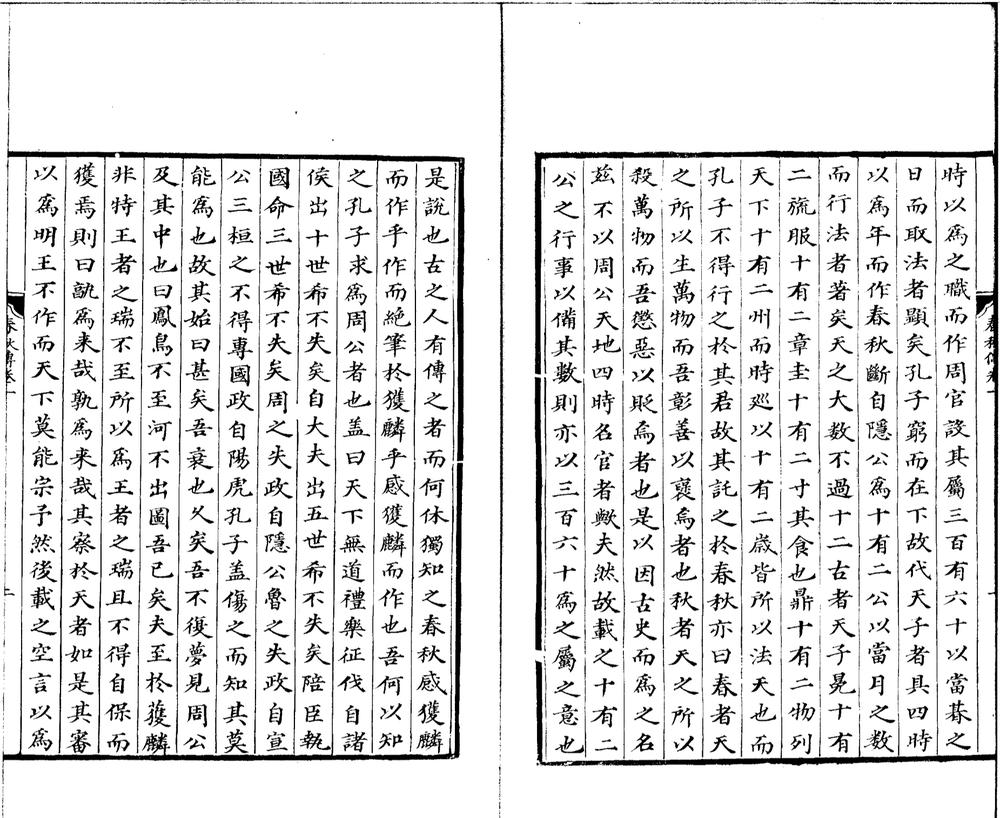 時以為之職而作周官設其屬三百有六十以當朞之
日而取法者顯矣孔子窮而在下故代天子者具四時
以為年而作春秋斷自隱公為十有二公以當月之數
而行法者著矣天之大數不過十二古者天子冕十有
二旒服十有二章圭十有二寸其食也鼎十有二物列
天下十有二州而時廵以十有二歲皆所以法天也而
孔子不得行之於其君故其託之於春秋亦曰春者天
之所以生萬物而吾彰善以襃焉者也秋者天之所以
殺萬物而吾懲惡以貶焉者也是以因古史而為之名
玆不以周公天地四時名官者歟夫然故載之十有二
公之行事以備其數則亦以三百六十為之屬之意也
春秋傳卷一
是說也古之人有傳之者而何休獨知之春秋感獲麟
而作乎作而絶筆於獲麟乎感獲麟而作也吾何以知
之孔子求為周公者也盖曰天下無道禮樂征伐自諸
侯出十世希不失矣自大夫出五世希不失矣陪臣執
國命三世希不失矣周之失政自隱公魯之失政自宣
公三桓之不得專國政自陽虎孔子盖傷之而知其莫
能為也故其始曰甚矣吾衰也乆矣吾不復夢見周公
及其中也曰鳳鳥不至河不出圖吾已矣夫至於獲麟
非特王者之瑞不至所以為王者之瑞且不得自保而
獲焉則曰孰為来哉孰為来哉其察於天者如是其審
以為明王不作而天下莫能宗予然後載之空言以為
春秋傳卷一
二